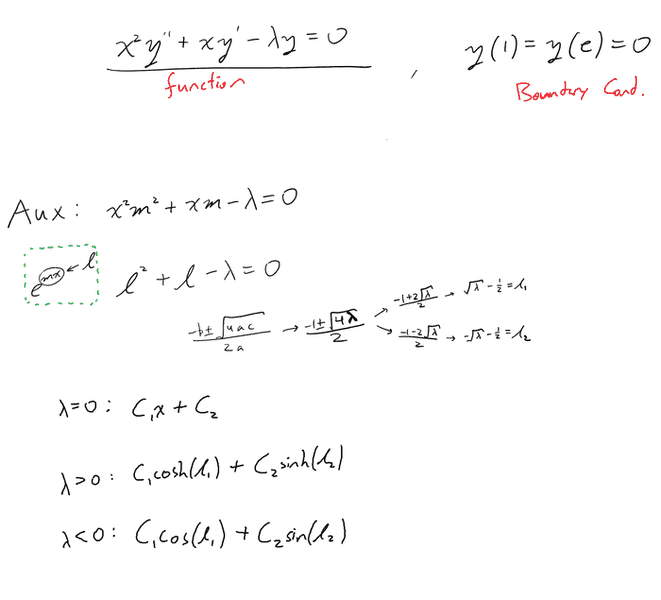 x²y'' + xy' - λy = 0 , y(1) = y(e) = 0
function Boundary Cond.
Aux: x²m² + xm - λ = 0
e^(mx) ← l l² + l - λ = 0
(-b ± √(4ac))/(2a) → (-1 ± √(4λ))/2 ↗ (-1+2√λ)/2 → √λ - 1/2 = l₁
↘ (-1-2√λ)/2 → -√λ - 1/2 = l₂
λ=0: C₁x + C₂
λ>0: C₁cosh(l₁) + C₂sinh(l₂)
λ<0: C₁cos(l₁) + C₂sin(l₂)